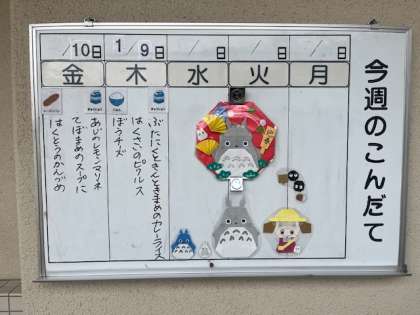 今週のこんだて
／ 日
月
／ 日
火
／ 日
水
1／9日
木
ぶたにくときんときまめのカレーライス
はくさいのピクルス
ぼうチーズ
／10日
金
あじのレモンマリネ
てぼまめのスープに
はくとうのかんづめ